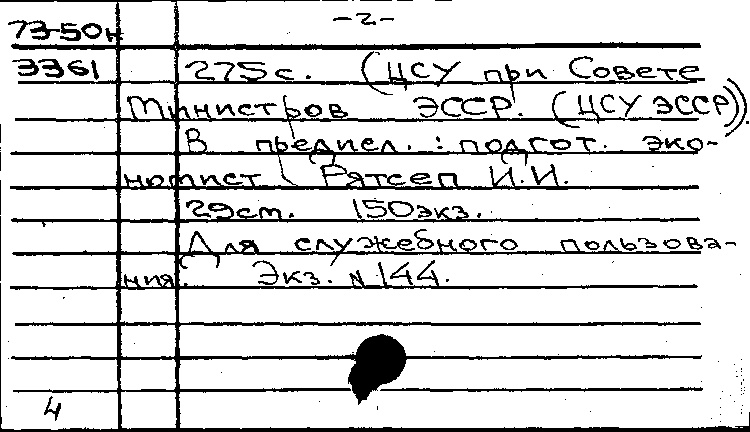 -2-
73-50н
3361 275с. (ЦСУ при Совете
Министров ЭССР. (ЦСУ ЭССР)).
В предисл.: подгот. эко-
номист Рятсеп И.И.
29см. 150экз.
Для служебного пользова-
ния. Экз. N 144.
4